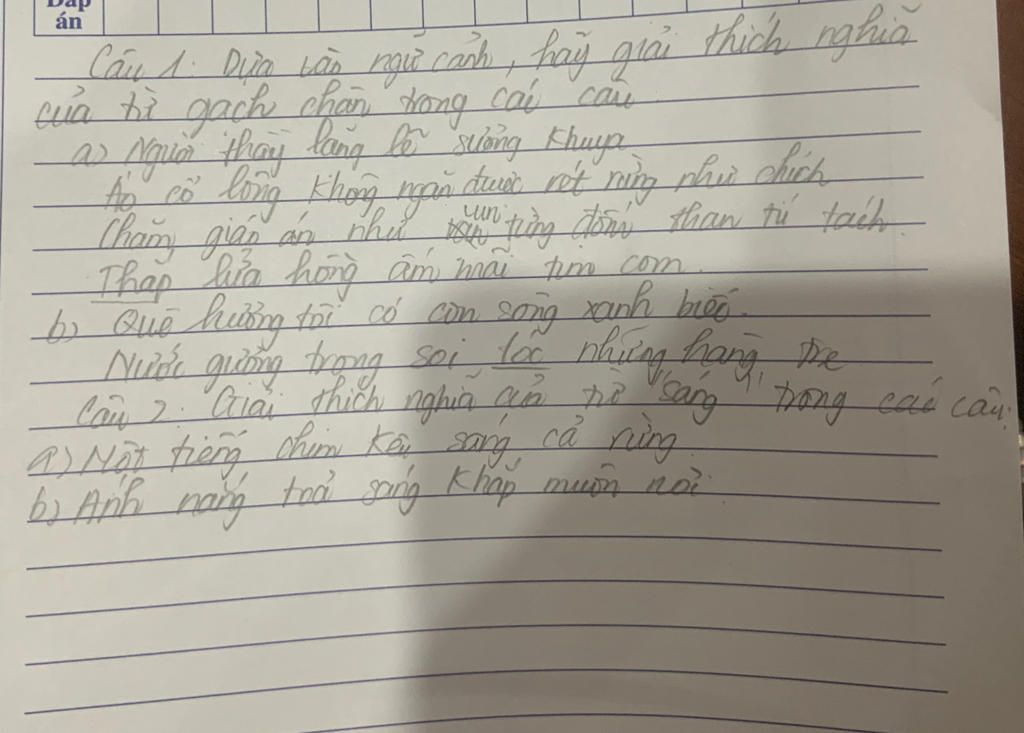 Đáp
án
Câu 1: Dựa vào ngữ cảnh, hãy giải thích nghĩa
của từ gạch chân trong các câu
a) Người thầy lặng lẽ sương khuya
Áo cổ lông không ngăn được rét rừng như chích
Chăm giáo án như vun từng đốm than tí tách.
Thap lửa hồng ấm mãi tim con.
b) Quê hương tôi có con sông xanh biếc.
Nước gương trong soi tóc những hàng tre
Câu 2: Giải thích nghĩa của từ "sáng" trong các câu:
a) Một tiếng chim kêu sáng cả rừng
b) Ánh nắng toả sáng khắp muôn nơi.